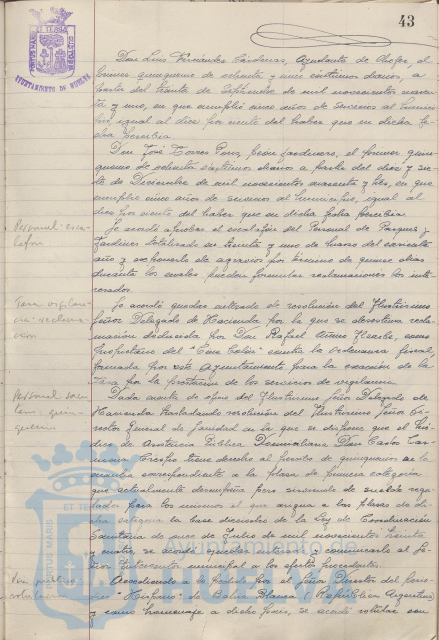 43
AYUNTAMIENTO DE HUELVA
Don Luis Fernández Cárdenas, Ayudante de Chofer, el
primer quinquenio de ochenta y cinco céntimos diarios, a
partir del treinta de Septiembre de mil novecientos cuaren
ta y uno, en que cumplió cinco años de servicios al Munici
pio, igual al diez por ciento del haber que en dicha fe
cha percibía
Don José Torres Pons, Peón Jardinero, el primer quin
quenio de céntimos diarios a partir del diez y sie
te de Diciembre de mil novecientos cuarenta y tres, en que
cumplió cinco años de servicios al Municipio, igual al
diez por ciento del haber que en dicha fecha percibía
Personal: esca
lafón
Se acordó aprobar el escalafón del Personal de Parques y
Jardines totalizado en treinta y uno de Marzo del corriente
año y exponerlo de agravios por término de quince días
durante los cuales puedan formular reclamaciones los inte
resados.
Tasa vigilan
cia: reclama
ción
Se acordó quedar enterado de resolución del Ilustrísimo
Señor Delegado de Hacienda por la que se desestima recla
mación deducida por Don Rafael como
propietario del "Cine Colón" contra la Ordenanza fiscal,
formada por este Ayuntamiento para la exacción de la
Tasa por la prestación de los servicios de vigilancia.
Personal
quin
quenio
Dada cuenta de oficio del Ilustrísimo Señor Delegado de
Hacienda trasladando resolución del Ilustrísimo Señor Di
rector General de Sanidad en la que se dispone que el Mé
dico de Asistencia Pública Domiciliaria Don Carlos
Crespo tiene derecho al percibo de quinquenios en la
cuantía correspondiente a la plaza de primera categoría
que actualmente desempeña pero sirviendo de sueldo regu
lador para los mismos el que asigna a las plazas de di
cha categoría la base dieciséis de la Ley de Coordinación
Sanitaria de once de Julio de mil novecientos treinta
y cuatro, se acordó quedar enterado y comunicarlo al Se
ñor Interventor municipal a los efectos procedentes.
Accediendo a lo pedido por el Señor Director del
"Hispano" de Bahía Blanca, República Argentina,
y como homenaje a dicho país, se acordó rotular con
PORTUS MARIS ET TERRAE CUSTODIA
Ayuntamiento de
HUELVA